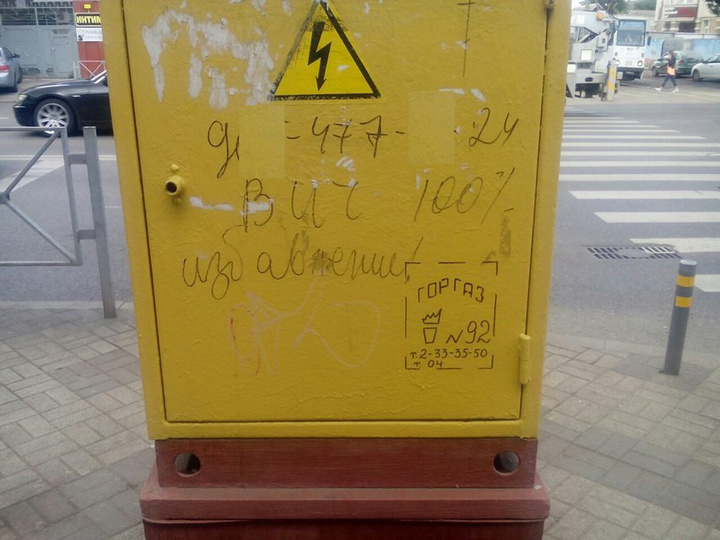 ИНТИМ
-477- 24
ВИЧ 100%
избавление!
ГОРГАЗ
N92
т.2-33-35-50
т 04